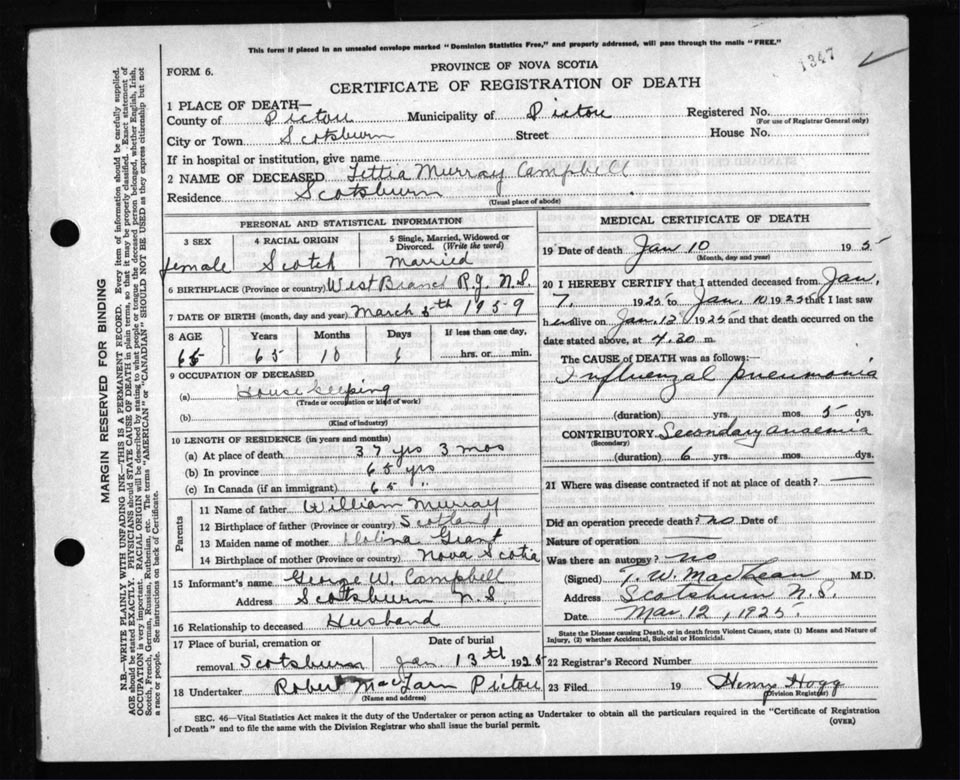 This form if placed in an unsealed envelope marked "Dominion Statistics Free," and properly addressed, will pass through the mails "FREE."
1347
FORM 6.
PROVINCE OF NOVA SCOTIA
CERTIFICATE OF REGISTRATION OF DEATH
1 PLACE OF DEATH—
County of Pictou Municipality of Pictou Registered No.
(For use of Registrar General only)
City or Town Scotsburn Street House No.
If in hospital or institution, give name
2 NAME OF DECEASED Murray Campbell
Residence Scotsburn
(Usual place of abode)
PERSONAL AND STATISTICAL INFORMATION
3 SEX 4 RACIAL ORIGIN 5 Single, Married, Widowed or Divorced. (Write the word)
female Scotch Married
6 BIRTHPLACE (Province or country) West Branch R.J. N.S.
7 DATE OF BIRTH (month, day and year) March 5th 1959
8 AGE Years Months Days If less than one day,
65 65 10 6 hrs. or min.
9 OCCUPATION OF DECEASED
(a) House keeping
(Trade or occupation or kind of work)
(b)
(Kind of industry)
10 LENGTH OF RESIDENCE (in years and months)
(a) At place of death 37 yrs 3 mos
(b) In province 65 yrs
(c) In Canada (if an immigrant) 65 "
Parents
11 Name of father William Murray
12 Birthplace of father (Province or country) Scotland
13 Maiden name of mother Grant
14 Birthplace of mother (Province or country) Nova Scotia
15 Informant's name George W. Campbell
Address Scotsburn N.S.
16 Relationship to deceased Husband
17 Place of burial, cremation or removal Scotsburn Date of burial Jan 13th 1925
18 Undertaker Robert Pictou
(Name and address)
MEDICAL CERTIFICATE OF DEATH
19 Date of death Jan 10 1925
(Month, day and year)
20 I HEREBY CERTIFY that I attended deceased from Jan,
7, 1925 to Jan. 10 1925 that I last saw
her alive on Jan. 12 1925 and that death occurred on the
date stated above, at 7.30 m.
The CAUSE OF DEATH was as follows:
Influenzal pneumonia
(duration) yrs. mos. 5 dys.
CONTRIBUTORY Secondary anaemia
(Secondary)
(duration) 6 yrs. mos. dys.
21 Where was disease contracted if not at place of death? —
Did an operation precede death? no Date of
Nature of operation —
Was there an autopsy? no
(Signed) T. W. MacLean M.D.
Address Scotsburn N.S.
Date Mar. 12, 1925.
State the Disease causing Death, or in death from Violent Causes, state (1) Means and Nature of Injury, (2) whether Accidental, Suicidal or Homicidal.
22 Registrar's Record Number
23 Filed 19 Henry Hogg
Division Registrar)
SEC. 46—Vital Statistics Act makes it the duty of the Undertaker or person acting as Undertaker to obtain all the particulars required in the "Certificate of Registration
of Death" and to file the same with the Division Registrar who shall issue the burial permit. (OVER)
MARGIN RESERVED FOR BINDING
N.B.—WRITE PLAINLY WITH UNFADING INK—THIS IS A PERMANENT RECORD. Every item of information should be carefully supplied.
AGE should be stated EXACTLY. PHYSICIANS should STATE CAUSE OF DEATH in plain terms, so that it may be properly classified. Exact statement of
OCCUPATION is very important. RACIAL ORIGIN will be described by stating to what people or tongue the deceased person belonged, whether English, Irish,
Scotch, French, German, Russian, Ruthenian, etc. The terms "AMERICAN" or "CANADIAN" SHOULD NOT BE USED as they express citizenship but not
a race or people. See instructions on back of Certificate.